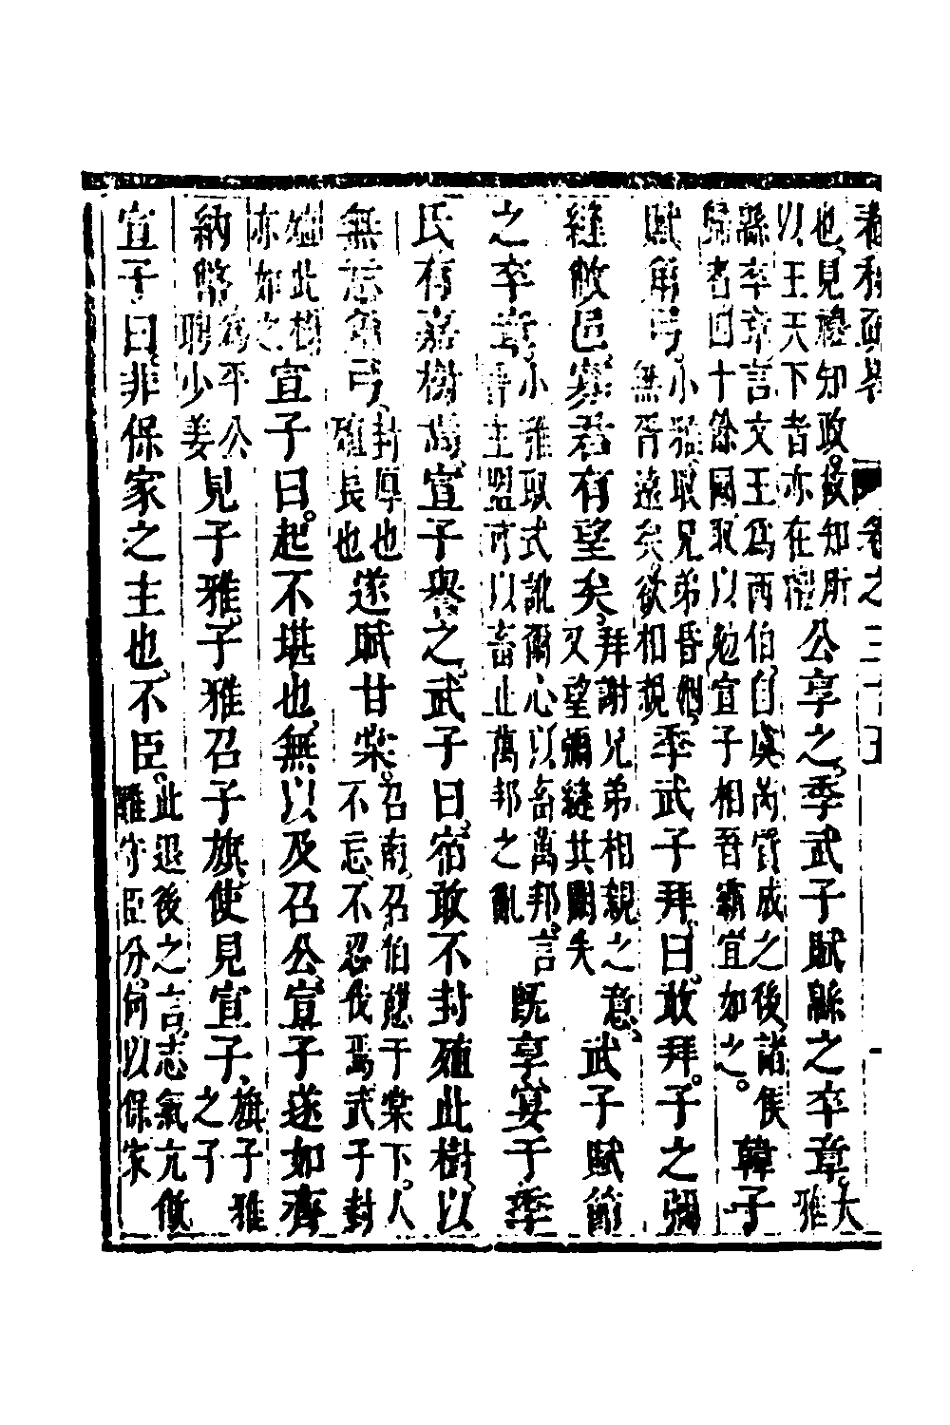 卷之三十五
也見禮知政故知所以王天下者亦在禮公享之季武子賦緜之卒章大雅
緜卒章言文王爲西伯自虞芮質成之後諸侯歸者四十餘國取以勉宣子相晉霸宜如之韓子
賦角弓小雅取兄弟昏姻無胥遠矣欲相親季武子拜曰敢拜子之彌
縫敝邑寡君有望矣拜謝兄弟相親之意又望彌縫其闕失武子賦節
之卒章小雅取式訛爾心以畜萬邦言晉主盟可以畜止萬邦之亂既享宴于季
氏有嘉樹焉宣子譽之武子曰宿敢不封殖此樹以
無忘角弓封厚也殖長也遂賦甘棠召南召伯憩于棠下人不忘不忍伐焉武子封
殖此樹亦如之宣子曰起不堪也無以及召公宣子遂如齊
納幣爲平公聘少姜見子雅子雅召子旗使見宣子旗子雅之子
宣子曰非保家之主也不臣此退後之言志氣亢傲難守臣分何以保家